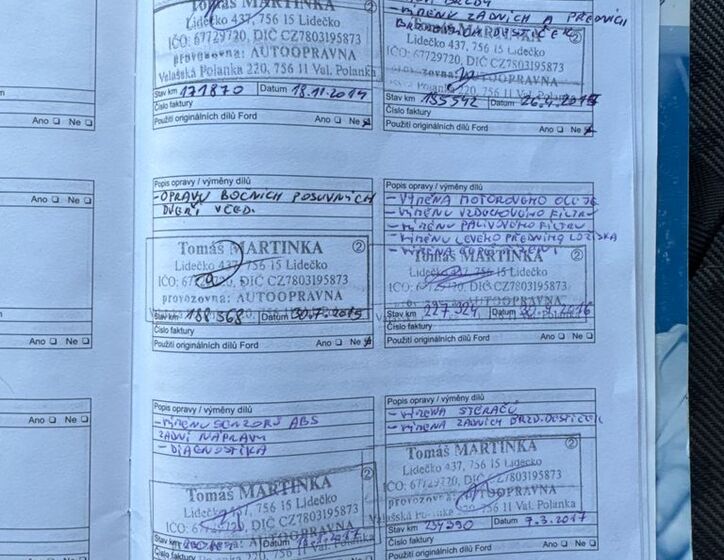 Tomáš MARTINKA
Lidečko 437, 756 15 Lidečko ②
IČO: 67729720, DIČ CZ7803195873
provozovna: AUTOOPRAVNA
Valašská Polanka 220, 756 11 Val. Polanka
Stav km 171870 Datum 18.11.2014
Číslo faktury
Použití originálních dílů Ford Ano Ne
- VÝMĚNU ZADNÍCH A PŘEDNÍCH
BRZDOVÝCH DESTIČEK ②
Lidečko 437, 756 15 Lidečko
IČO: 67729720, DIČ CZ7803195873
provozovna: AUTOOPRAVNA
Stav km 185542 Datum 26.4.
Číslo faktury
Použití originálních dílů Ford Ano Ne
Ano Ne
Ano Ne
Popis opravy / výměny dílů
- OPRAVU BOČNÍCH POSUVNÝCH
DVEŘÍ VZAD.
Tomáš MARTINKA ②
Lidečko 437, 756 15 Lidečko
IČO: 67729720, DIČ CZ7803195873
provozovna: AUTOOPRAVNA
Stav km 188368 Datum 30.7.2015
Číslo faktury
Použití originálních dílů Ford Ano Ne
Popis opravy / výměny dílů
- VÝMĚNA MOTOROVÉHO OLEJE
- VÝMĚNU VZDUCHOVÉHO FILTRU
- VÝMĚNU PALIVOVÉHO FILTRU
- VÝMĚNU LEVÉHO PŘEDNÍHO LOŽISKA
Tomáš MARTINKA
Stav km 227.324 Datum 2016
Číslo faktury
Použití originálních dílů Ford Ano Ne
Ano Ne
Ano Ne
Popis opravy / výměny dílů
- VÝMĚNU SENZORŮ ABS
ZADNÍ NÁPRAVY
- DIAGNOSTIKA
Tomáš MARTINKA ②
Lidečko 437, 756 15 Lidečko
IČO: 67729720, DIČ CZ7803195873
Datum 2017
Číslo faktury
Popis opravy / výměny dílů
- VÝMĚNA STĚRAČŮ
- VÝMĚNA ZADNÍCH BRZD. DESTIČEK
Tomáš MARTINKA ②
Lidečko 437, 756 15 Lidečko
IČO: 67729720, DIČ CZ7803195873
provozovna: AUTOOPRAVNA
Valašská Polanka 220, 756 11 Val. Polanka
Stav km 234390 Datum 7.3.2017
Číslo faktury
Použití originálních dílů Ford Ano Ne